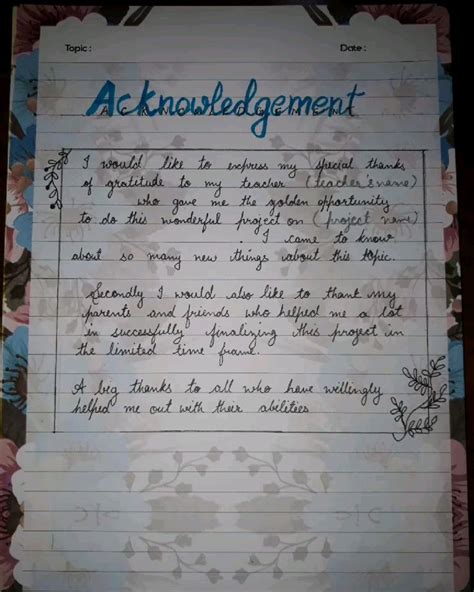 Topic : Date :
Acknowledgement
ACKNOWLEDGEMENT
I would like to express my special thanks
of gratitude to my teacher (teacher's name)
who gave me the golden opportunity
to do this wonderful project on (project name)
I came to know
about so many new things about this topic.
Secondly I would also like to thank my
parents and friends who helped me a lot
in successfully finalizing this project in
the limited time frame.
A big thanks to all who have willingly
helped me out with their abilities